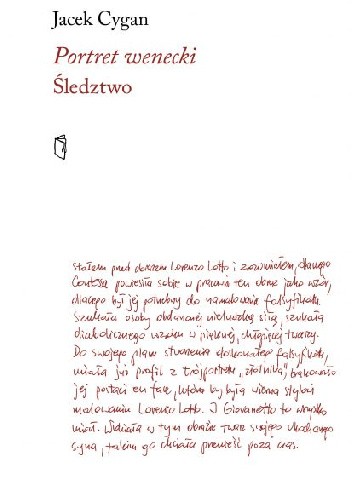 Jacek Cygan
Portret wenecki
Śledztwo
Stałem przed obrazem Lorenzo Lotto i zrozumiałem, dlaczego
Contessa powiesiła sobie w pracowni ten obraz jako wzór,
dlaczego był jej potrzebny do namalowania falsyfikatu.
Szukała osoby obdarzonej nieludzką siłą, szukała
diabolicznego wzoru w pięknej, chłopięcej twarzy.
Do swojego planu stworzenia doskonałego falsyfikatu,
miała już profil z trójportretu „złotnika”, brakowało
jej postaci en face, która by była wierna stylowi
malowania Lorenzo Lotto. I Giovanetto to wszystko
miał. Widziała w tym obrazie twarz swojego ukochanego
syna, takim go chciała przenieść poza czas.